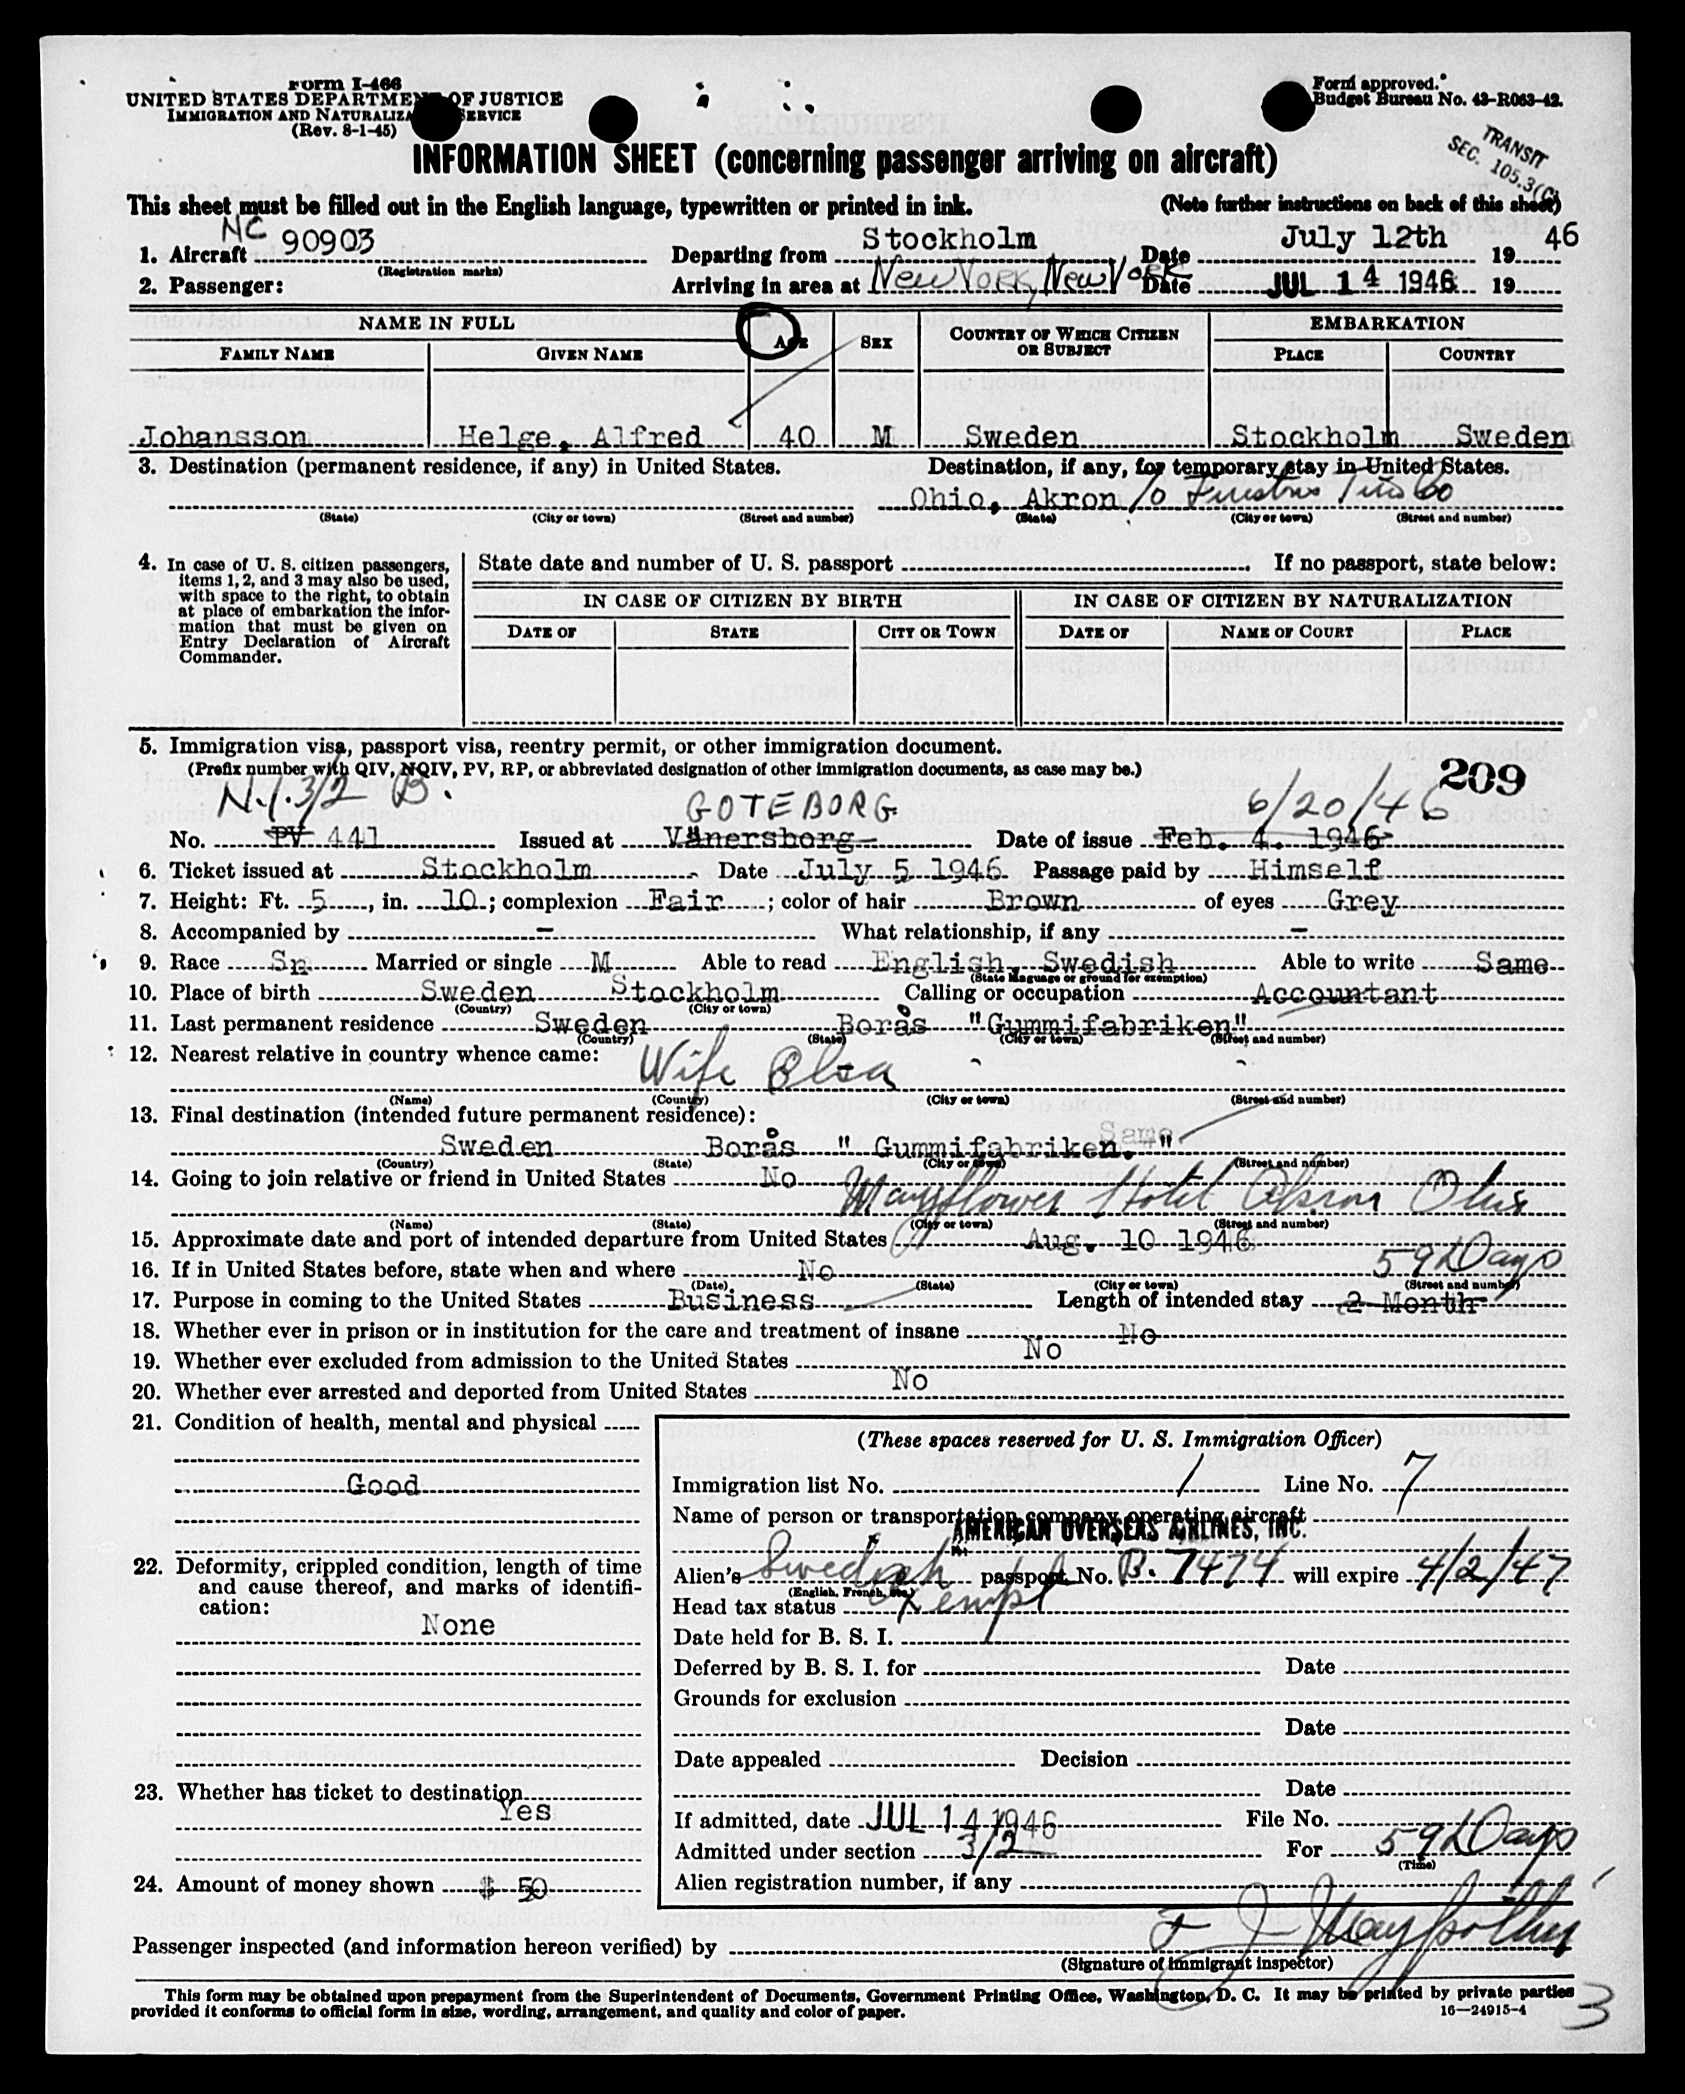 Form I-466
UNITED STATES DEPARTMENT OF JUSTICE
IMMIGRATION AND NATURALIZA SERVICE
(Rev. 8-1-45)
Form approved.
Budget Bureau No. 43-R063-42.
TRANSIT
SEC. 105.3(C)
INFORMATION SHEET (concerning passenger arriving on aircraft)
This sheet must be filled out in the English language, typewritten or printed in ink. (Note further instructions on back of this sheet)
1. Aircraft NC 90903 Departing from Stockholm Date July 12th 1946
(Registration marks)
2. Passenger: Arriving in area at New York, New York Date JUL 14 1946 19
NAME IN FULL AGE SEX COUNTRY OF WHICH CITIZEN OR SUBJECT EMBARKATION
FAMILY NAME GIVEN NAME PLACE COUNTRY
Johansson Helge, Alfred 40 M Sweden Stockholm Sweden
3. Destination (permanent residence, if any) in United States. Destination, if any, for temporary stay in United States.
Ohio, Akron
(State) (City or town) (Street and number) (State) (City or town) (Street and number)
4. In case of U. S. citizen passengers, items 1, 2, and 3 may also be used, with space to the right, to obtain at place of embarkation the information that must be given on Entry Declaration of Aircraft Commander.
State date and number of U. S. passport . If no passport, state below:
IN CASE OF CITIZEN BY BIRTH IN CASE OF CITIZEN BY NATURALIZATION
DATE OF STATE CITY OR TOWN DATE OF NAME OF COURT PLACE
5. Immigration visa, passport visa, reentry permit, or other immigration document.
(Prefix number with QIV, NQIV, PV, RP, or abbreviated designation of other immigration documents, as case may be.)
209
N.I. 3/2 B. GOTEBORG 6/20/46
No. PV 441 Issued at Vänersborg Date of issue Feb. 4. 1946
6. Ticket issued at Stockholm Date July 5 1946 Passage paid by Himself
7. Height: Ft. 5, in. 10; complexion Fair; color of hair Brown of eyes Grey
8. Accompanied by - What relationship, if any -
9. Race Sn Married or single M Able to read English, Swedish Able to write Same
(State language or ground for exemption)
10. Place of birth Sweden Stockholm Calling or occupation Accountant
(Country) (City or town)
11. Last permanent residence Sweden Borås "Gummifabriken"
(Country) (State) (City or town) (Street and number)
12. Nearest relative in country whence came:
Wife Elsa
(Name) (Country) (City or town) (Street and number)
13. Final destination (intended future permanent residence):
Same.
Sweden Borås " Gummifabriken. "
(Country) (State) (City or town) (Street and number)
14. Going to join relative or friend in United States No
Mayflower Hotel Akron Ohio
(Name) (State) (City or town) (Street and number)
15. Approximate date and port of intended departure from United States Aug. 10 1946
16. If in United States before, state when and where No
(Date) (State) (City or town) (Street and number)
59 Days
17. Purpose in coming to the United States Business Length of intended stay 2 Month
18. Whether ever in prison or in institution for the care and treatment of insane No
19. Whether ever excluded from admission to the United States No
20. Whether ever arrested and deported from United States No
21. Condition of health, mental and physical
Good
22. Deformity, crippled condition, length of time and cause thereof, and marks of identification:
None
23. Whether has ticket to destination
Yes
24. Amount of money shown $ 50
(These spaces reserved for U. S. Immigration Officer)
Immigration list No. 1 Line No. 7
Name of person or transportation company operating aircraft
AMERICAN OVERSEAS AIRLINES, INC.
Alien's Swedish passport No. B. 7474 will expire 4/2/47
(English, French, etc.)
Head tax status Exempt
Date held for B. S. I.
Deferred by B. S. I. for Date
Grounds for exclusion
Date
Date appealed Decision
Date
If admitted, date JUL 14 1946 File No.
Admitted under section 3/2 For 59 Days
(Time)
Alien registration number, if any
Passenger inspected (and information hereon verified) by
(Signature of immigrant inspector)
This form may be obtained upon prepayment from the Superintendent of Documents, Government Printing Office, Washington, D. C. It may be printed by private parties
provided it conforms to official form in size, wording, arrangement, and quality and color of paper.
16—24915-4
3